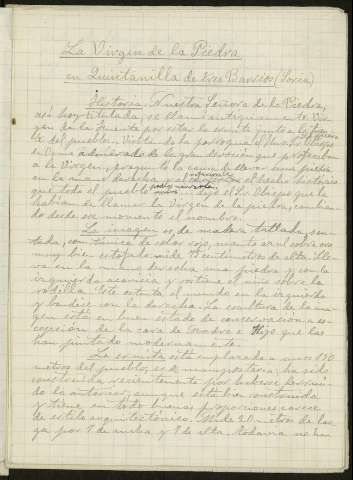 La Virgen de la Piedra
en Quintanilla de Tres Barrios (Soria)
Historia. Nuestra Señora de la Piedra,
así hoy titulada, se llamó antiguamente Vir-
gen de la Fuente por estar la ermita junto a la fuente
del pueblo. Visitó la parroquia el Obispo
de Osma admirado de la gran devoción que profesaban
a la Virgen, preguntó la causa de llevar una piedra
en la mano derecha, y al
que todo el pueblo dijo el Sr. Obispo que
habían de llamar la Virgen de la piedra, cambian-
do desde ese momento el nombre.
La imagen es, de madera tallada, sen-
tada, con túnica de color rojo, manto azul sobre oro
muy bien estofada mide 75 centímetros de alta. Lle-
va en la mano derecha una piedra y con la
izquierda acaricia y sostiene al niño sobre la
rodilla. Este ostenta el mundo en la izquierda
y bendice con la derecha. La escultura de la ima-
gen está en buen estado de conservación a ex-
cepción de la cara de Madre e Hijo que las
han pintado modernamente.
La ermita está emplazada a unos 150
metros del pueblo, es de mampostería, ha sido
construida recientemente por haberse
la anterior, aun que está bien construida
y tiene en todo buenas proporciones carece
de estilo arquitectónico. Mide 20 metros de lar-
ga por 7 de ancha y 8 de alta. Todavía no han